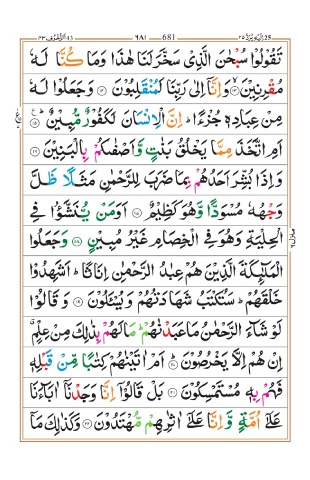 الزخرف ٤٣ ٦٨١ 681 اليه يرد ٢٥
تَقُوۡلُوۡا سُبۡحٰنَ الَّذِىۡ سَخَّرَ لَنَا هٰذَا وَمَا كُنَّا لَهٗ
مُقۡرِنِيۡنَۙ‏ ﴿۱۳﴾ وَاِنَّاۤ اِلٰى رَبِّنَا لَمُنۡقَلِبُوۡنَ‏ ﴿۱۴﴾ وَجَعَلُوۡا لَهٗ
مِنۡ عِبَادِهٖ جُزۡءًا‌ ؕ اِنَّ الۡاِنۡسَانَ لَـكَفُوۡرٌ مُّبِيۡنٌ ؕ‏ ﴿۱۵﴾
اَمِ اتَّخَذَ مِمَّا يَخۡلُقُ بَنٰتٍ وَّاَصۡفٰٮكُمۡ بِالۡبَنِيۡنَ‏ ﴿۱۶﴾
وَاِذَا بُشِّرَ اَحَدُهُمۡ بِمَا ضَرَبَ لِلرَّحۡمٰنِ مَثَلًا ظَلَّ
وَجۡهُهٗ مُسۡوَدًّا وَّهُوَ كَظِيۡمٌ‏ ﴿۱۷﴾ اَوَمَنۡ يُّنَشَّؤُا فِى
الۡحِلۡيَةِ وَهُوَ فِى الۡخِصَامِ غَيۡرُ مُبِيۡنٍ‏ ﴿۱۸﴾ وَجَعَلُوا
الۡمَلٰٓٮِٕكَةَ الَّذِيۡنَ هُمۡ عِبٰدُ الرَّحۡمٰنِ اِنَاثًا‌ ؕ اَشَهِدُوۡا
خَلۡقَهُمۡ‌ ؕ سَتُكۡتَبُ شَهَادَتُهُمۡ وَيُسۡـئَـلُوۡنَ‏ ﴿۱۹﴾ وَقَالُوۡا
لَوۡ شَآءَ الرَّحۡمٰنُ مَا عَبَدۡنٰهُمۡ‌ ؕ مَا لَهُمۡ بِذٰلِكَ مِنۡ عِلۡمٍ‌
اِنۡ هُمۡ اِلَّا يَخۡرُصُوۡنَؕ‏ ﴿۲۰﴾ اَمۡ اٰتَيۡنٰهُمۡ كِتٰبًا مِّنۡ قَبۡلِهٖ
فَهُمۡ بِهٖ مُسۡتَمۡسِكُوۡنَ‏ ﴿۲۱﴾ بَلۡ قَالُـوۡۤا اِنَّا وَجَدۡنَاۤ اٰبَآءَنَا
عَلٰٓى اُمَّةٍ وَّاِنَّا عَلٰٓى اٰثٰرِهِمۡ مُّهۡتَدُوۡنَ‏ ﴿۲۲﴾ وَكَذٰلِكَ مَاۤ